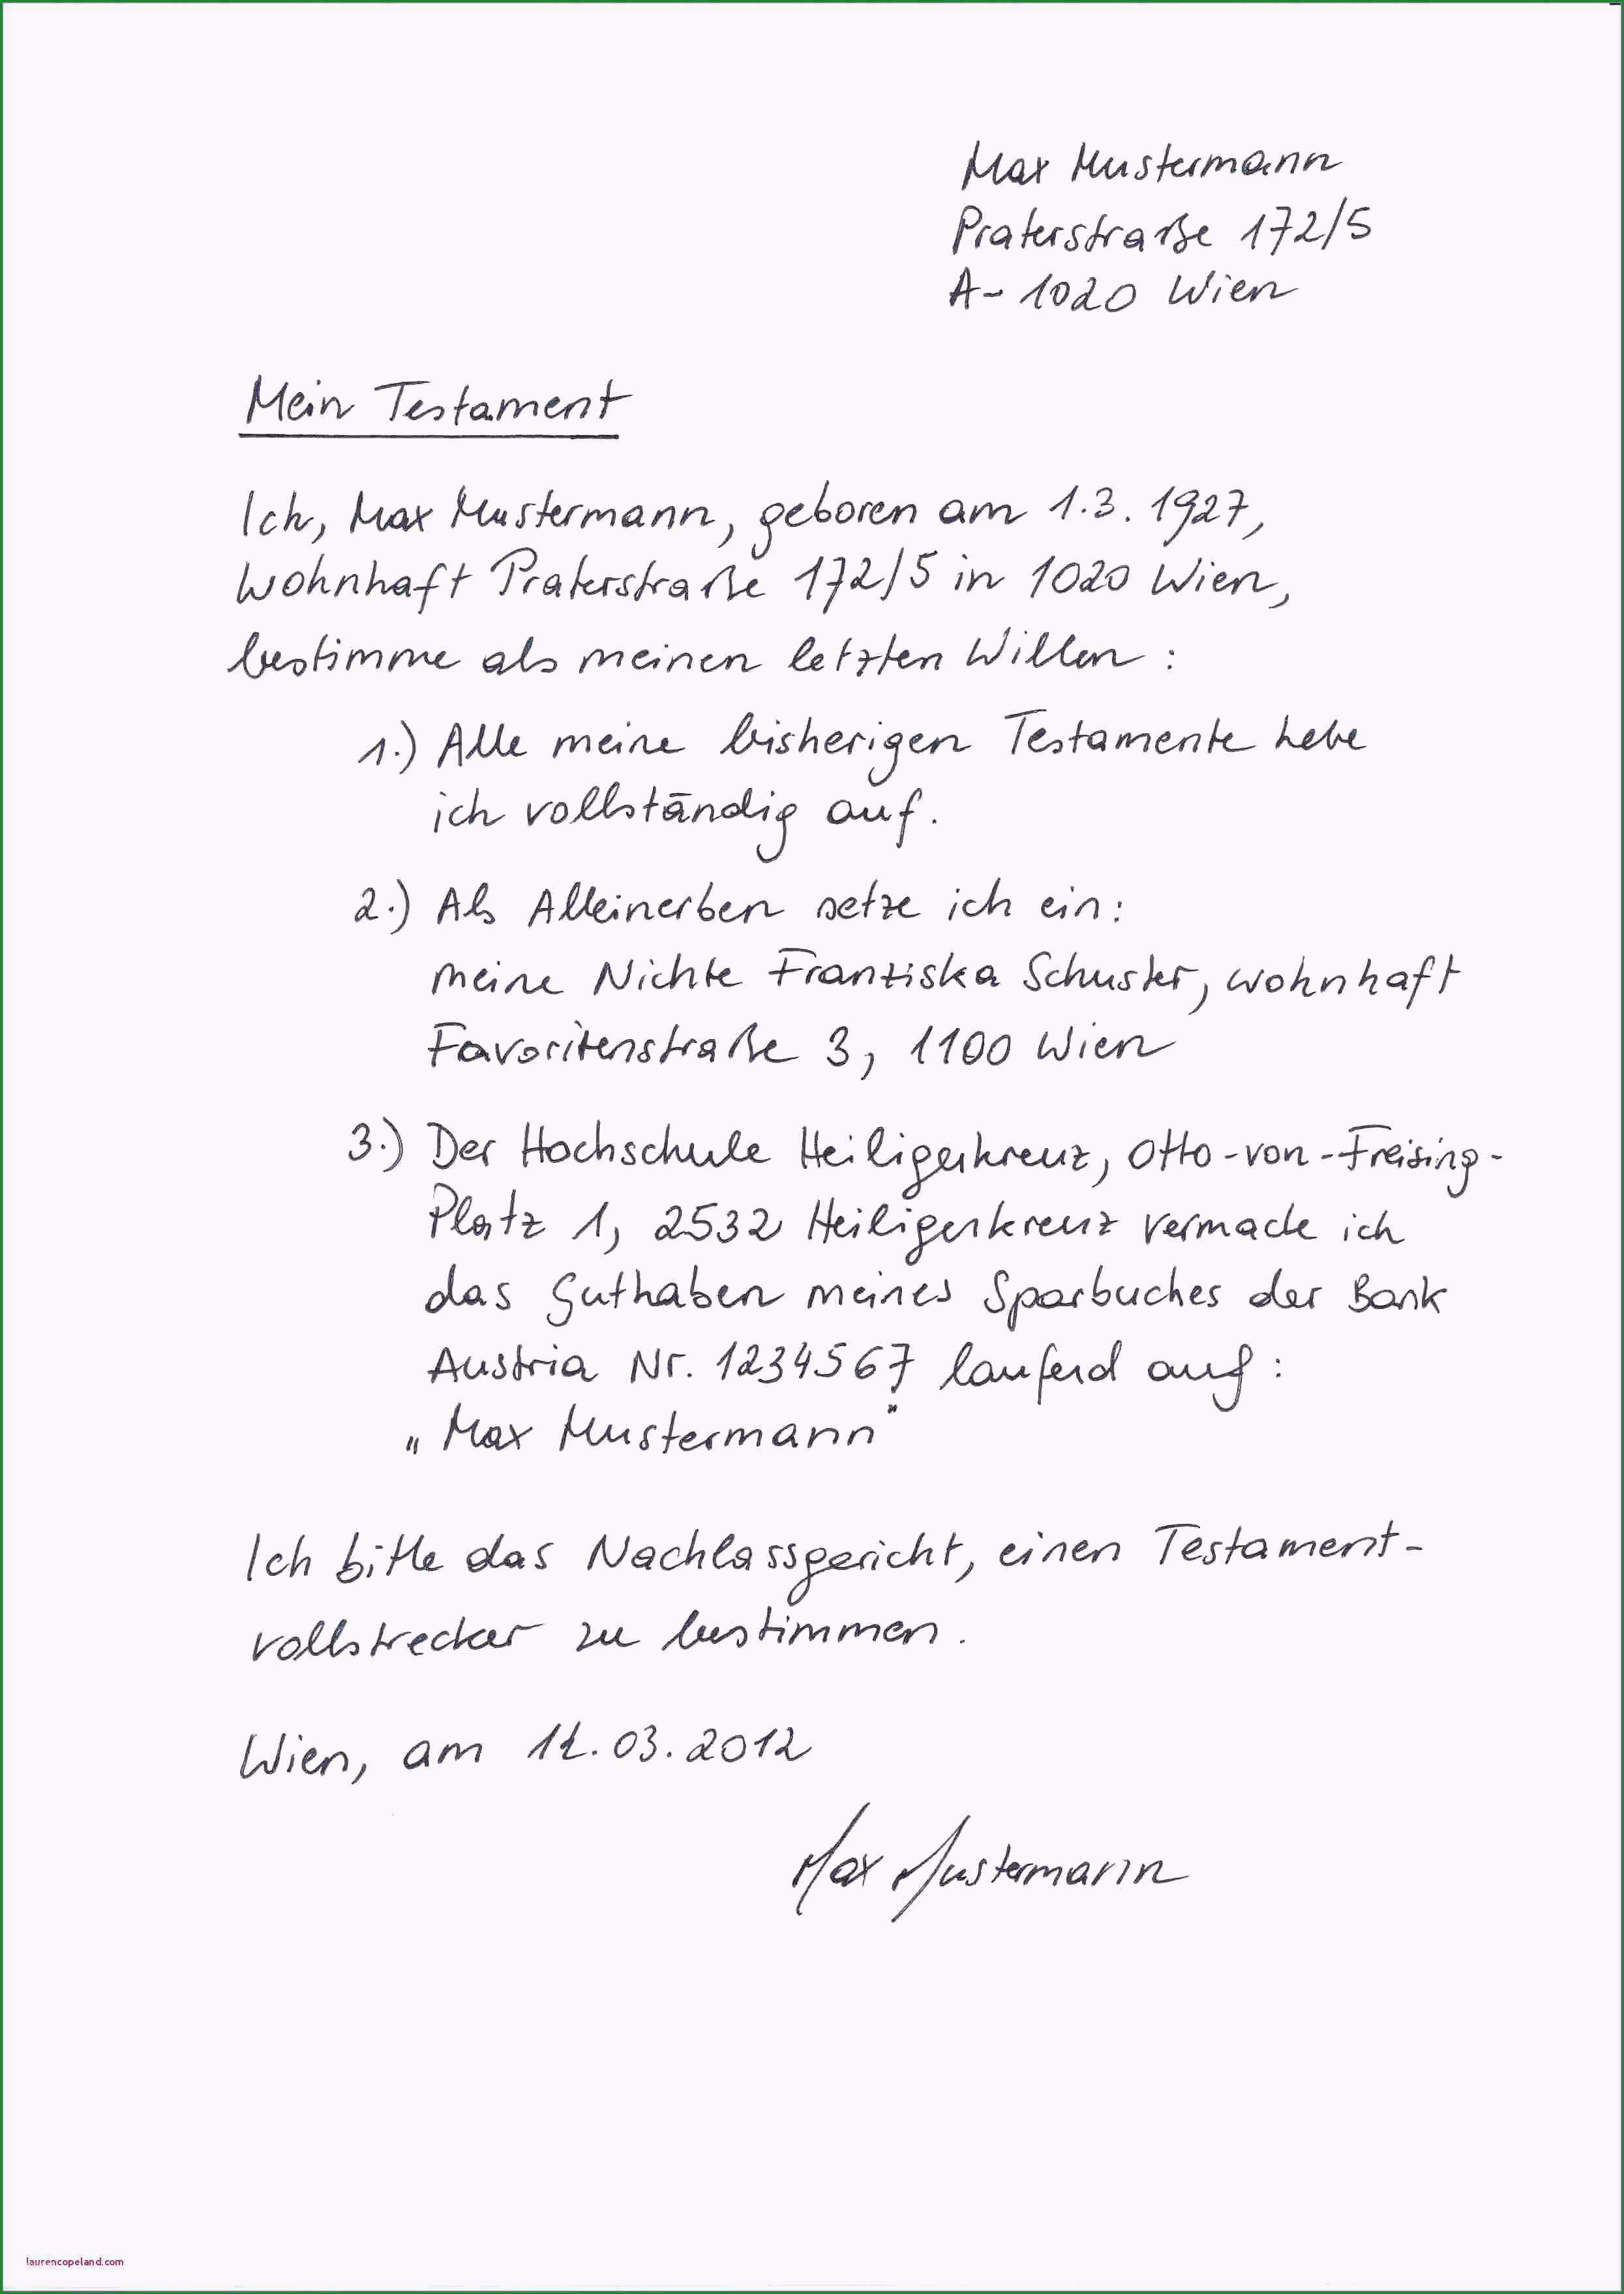 Max Mustermann
Praterstraße 172/5
A- 1020 Wien
Mein Testament
Ich, Max Mustermann, geboren am 1.3.1927,
wohnhaft Praterstraße 172/5 in 1020 Wien,
bestimme als meinen letzten Willen:
1.) Alle meine bisherigen Testamente hebe
ich vollständig auf.
2.) Als Alleinerben setze ich ein:
meine Nichte Franziska Schuster, wohnhaft
Favoritenstraße 3, 1100 Wien
3.) Der Hochschule Heiligenkreuz, Otto-von-Freising-
Platz 1, 2532 Heiligenkreuz vermache ich
das Guthaben meines Sparbuches der Bank
Austria Nr. 1234567 laufend auf:
„Max Mustermann"
Ich bitte das Nachlassgericht, einen Testament-
vollstrecker zu bestimmen.
Wien, am .03.2012
Max Mustermann
laurencopeland.com